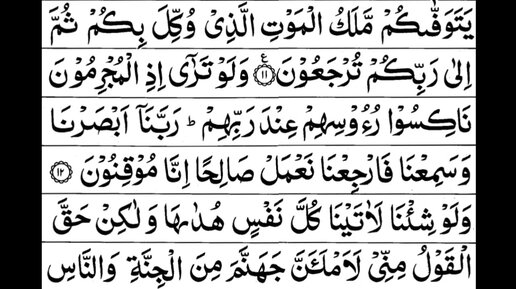 يَتَوَفّٰىكُمْ مَّلَكُ الْمَوْتِ الَّذِىْ وُكِّلَ بِكُمْ ثُمَّ
اِلٰى رَبِّكُمْ تُرْجَعُوْنَ ۧ﴿۱۱﴾ وَلَوْ تَرٰٓى اِذِ الْمُجْرِمُوْنَ
نَاكِسُوْا رُءُوْسِهِمْ عِنْدَ رَبِّهِمْ ؕ رَبَّنَاۤ اَبْصَرْنَا
وَسَمِعْنَا فَارْجِعْنَا نَعْمَلْ صَالِحًا اِنَّا مُوْقِنُوْنَ ﴿۱۲﴾
وَلَوْ شِئْنَا لَاٰتَيْنَا كُلَّ نَفْسٍ هُدٰىهَا وَلٰكِنْ حَقَّ
الْقَوْلُ مِنِّىْ لَاَمْلَئَنَّ جَهَنَّمَ مِنَ الْجِنَّةِ وَالنَّاسِ